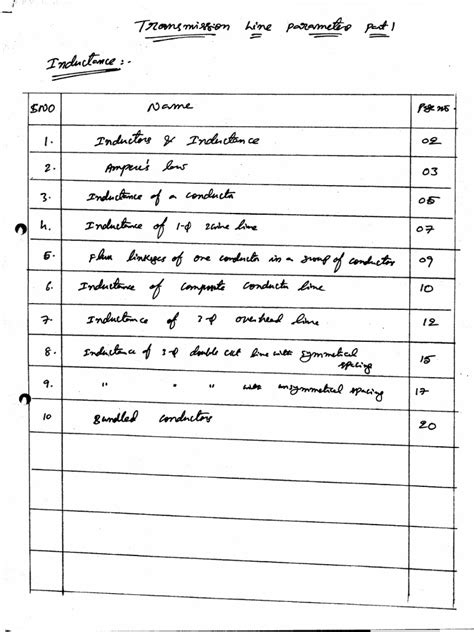 Transmission Line parameters part 1
Inductance :-
S.NO Name Page no.
1. Inductors & Inductance 02
2. Ampere's law 03
3. Inductance of a conductor 05
4. Inductance of 1-φ 2wire line 07
5. Flux linkages of one conductor in a group of conductors 09
6. Inductance of composite conductor line 10
7. Inductance of 3-φ overhead line 12
8. Inductance of 3-φ double ckt line with symmetrical
spacing 15
9. " " " with unsymmetrical spacing 17
10 Bundled conductors 20